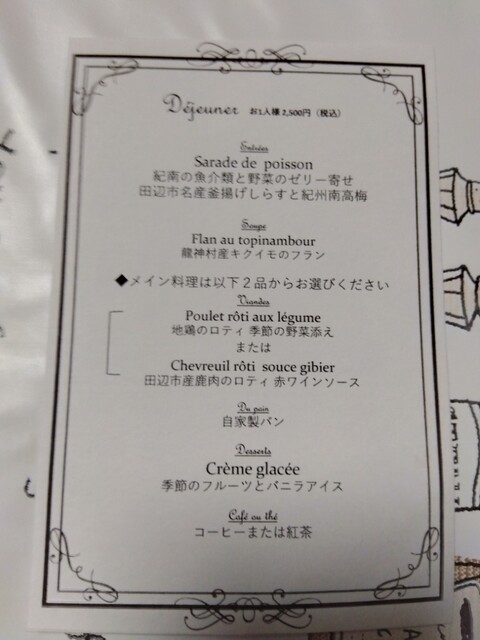 Déjeuner お1人様 2,500円（税込）
Entrées
Sarade de poisson
紀南の魚介類と野菜のゼリー寄せ
田辺市名産釜揚げしらすと紀州南高梅
Soupe
Flan au topinambour
龍神村産キクイモのフラン
◆メイン料理は以下２品からお選びください
Viandes
Poulet rôti aux légume
地鶏のロティ 季節の野菜添え
または
Chevreuil rôti souce gibier
田辺市産鹿肉のロティ 赤ワインソース
Du pein
自家製パン
Desserts
Crème glacée
季節のフルーツとバニラアイス
Café ou thé
コーヒーまたは紅茶